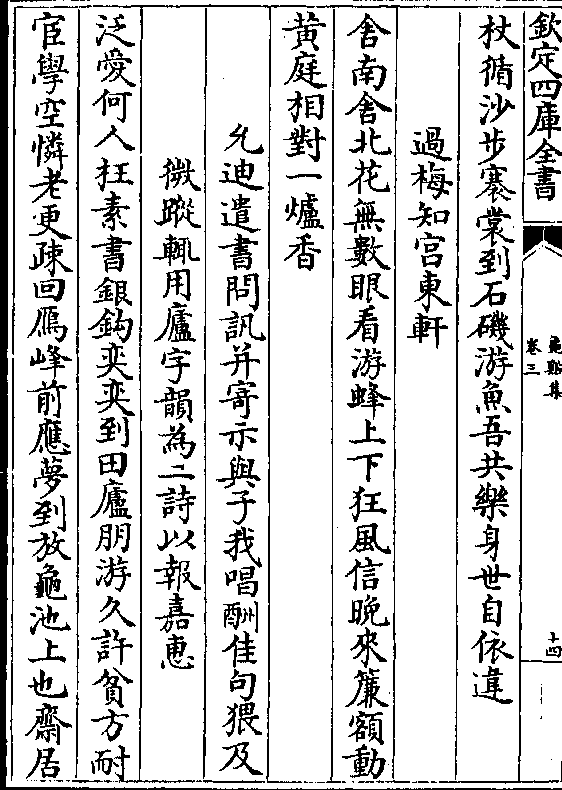 欽定四庫全書
龜谿集
卷三
十四
杖循沙步褰裳到石磯游魚吾共樂身世自依違
過梅知宫東軒
舍南舍北花無數眼看游蜂上下狂風信晚來簾額動
黄庭相對一爐香
允迪遣書問訊并寄示與子我唱酬佳句猥及
微蹤輒用廬字韻為二詩以報嘉惠
泛愛何人枉素書銀鈎奕奕到田廬朋游久許貧方耐
宦學空憐老更疎回鴈峰前應夢到放龜池上也齋居